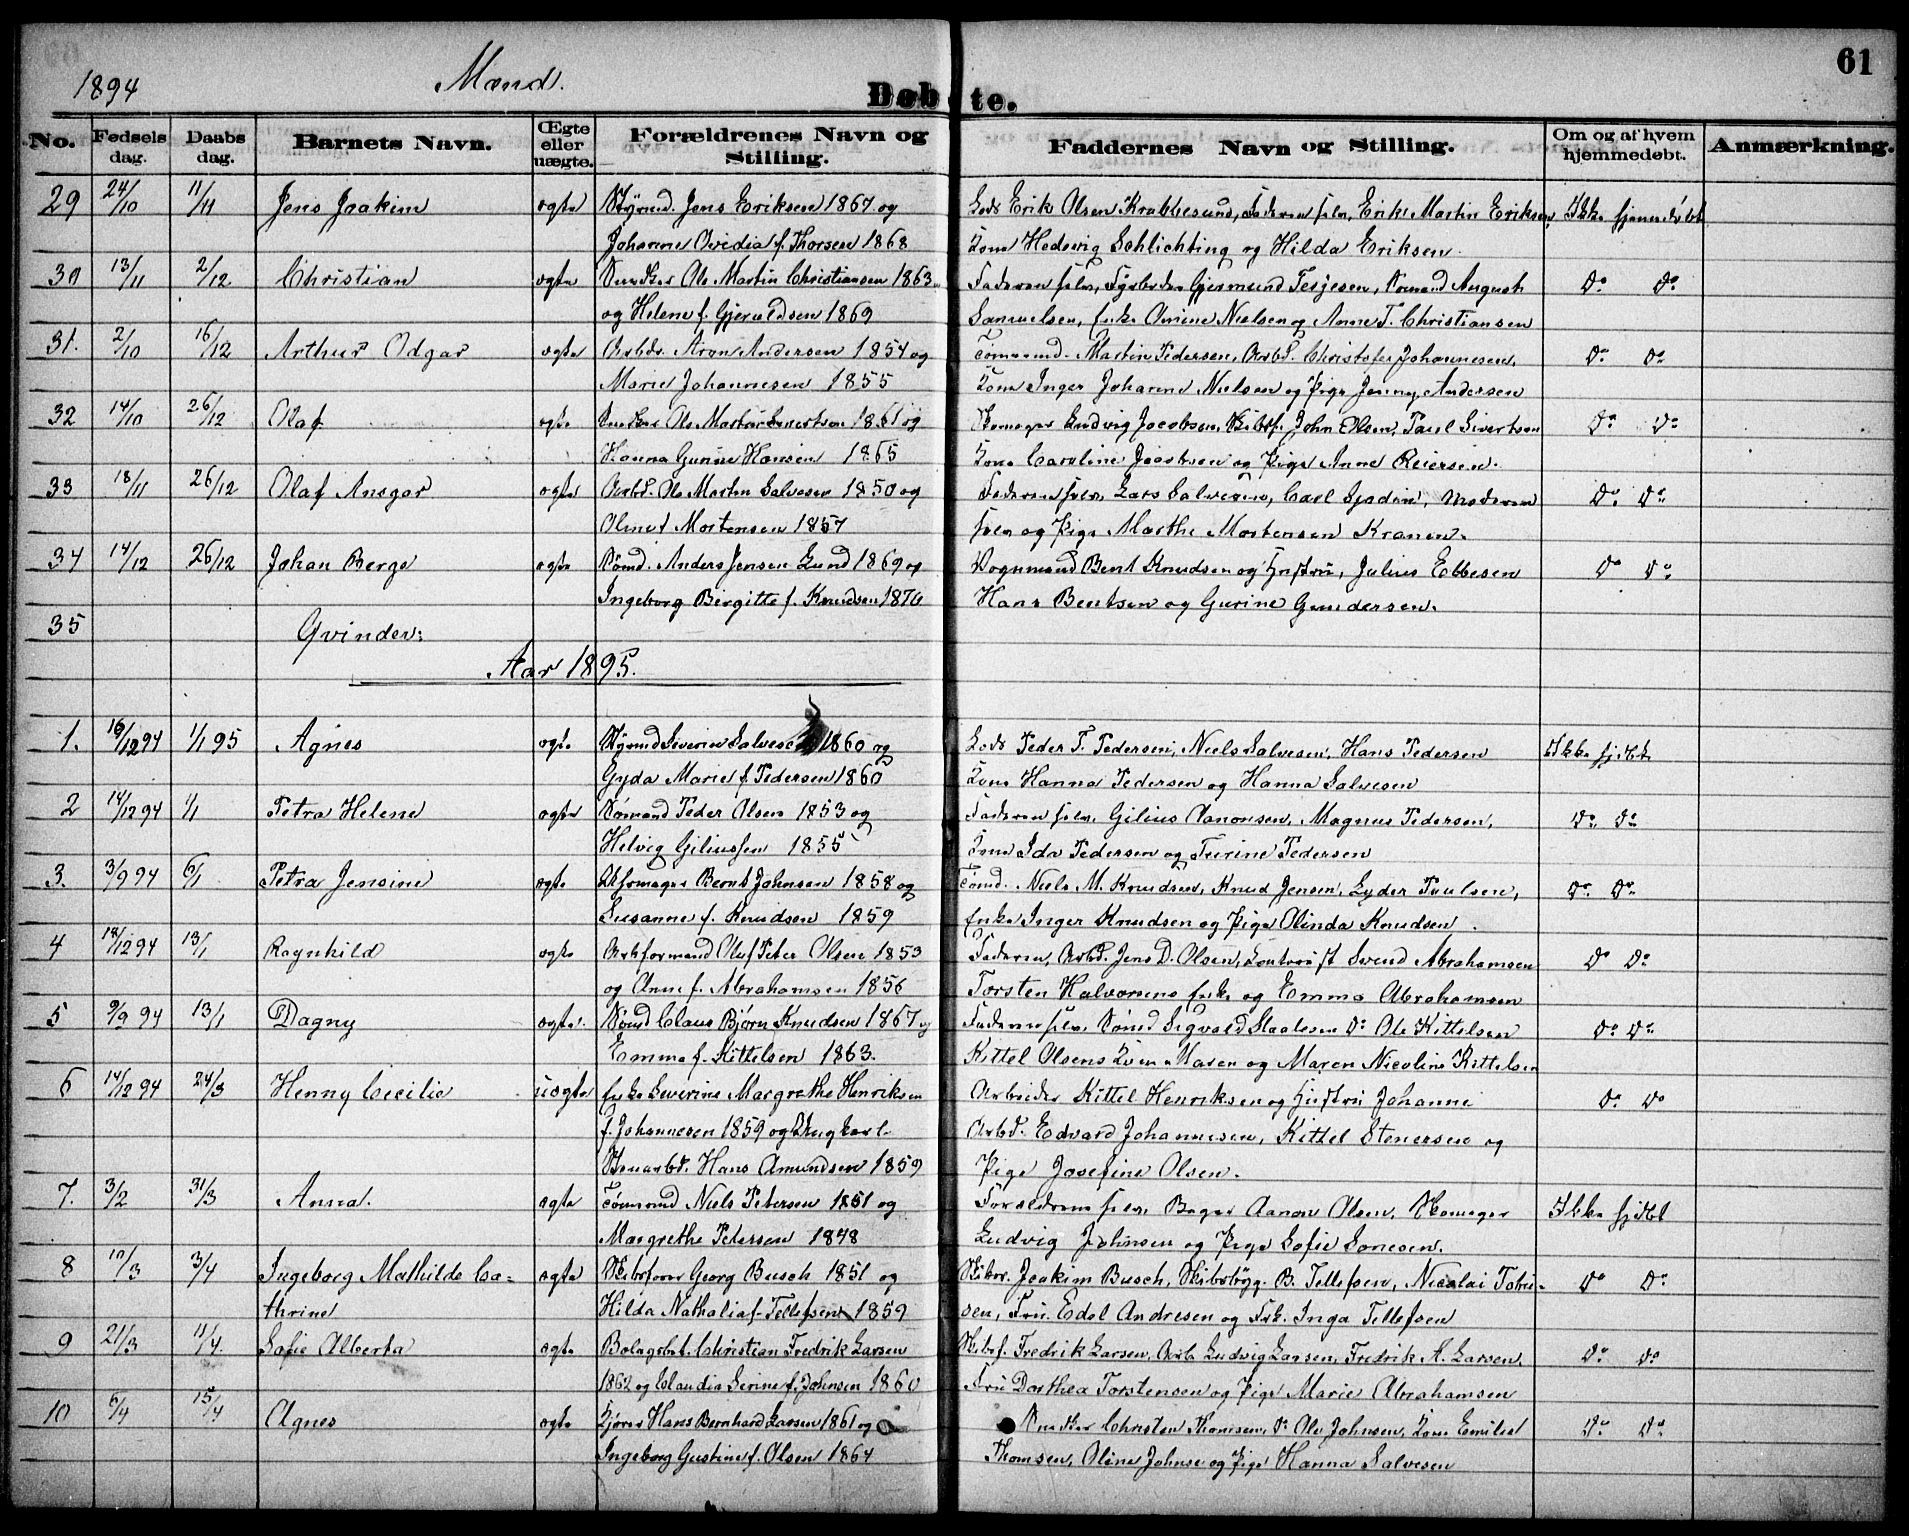 61
1894 Mænd.
Døbte.
No. Fødsels dag. Daabs dag. Barnets Navn. Œgte eller uægte. Forældrenes Navn og Stilling. Faddernes Navn og Stilling. Om og af hvem hjemmedøbt. Anmærkning.
29 24/10 11/11 Jens Joakim ægte Styrmd. Jens Eriksen 1867 og Lods Erik Olsen Krabbesund, Faderen selv, Erik Martin Eriksen, Ikke hjemmedøbt
Johanne Ovidia f. Thorsen 1868 Kone Hedevig Schlichting og Hilda Eriksen.
30 13/11 2/12 Christian ægte Snedker Ole Martin Christiansen 1863 Faderen selv, Fyrbøder Gjermund Terjesen, Sømand August Do Do
og Helene f. Gjeruldsen 1869 Samuelsen, Enke Amine Nielsen og Anne T. Christiansen
31. 2/10 16/12 Arthur Odgar ægte Arbdr. Aron Andersen 1854 og Tømmmd. Martin Pedersen, Arbd. Christofer Johannesen, Do Do
Marie Johannesen 1855 Kone Inger Johanne Nielsen og Pige Jenny Andersen
32 14/10 26/12 Olaf ægte Snedker Ole Martin Sivertsen 1861 og Skomager Ludvig Jacobsen, Skibsf. John Olsen, Paul Sivertsen Do Do
Hanna Gunine Hansen 1865 Kone Caroline Jacobsen og Pige Anne Reiersen.
33 18/11 26/12 Olaf Ansgar ægte Arbd. Ole Martin Salvesen 1850 og Faderen selv, Lars Salvesen, Carl Sjødin, Moderen Do Do
Oline f Mortensen 1857 selv og Pige Marthe Mortensen Kranen.
34 14/12 26/12 Johan Berge ægte Sømd. Anders Jensen Lund 1869 og Vognmand Bent Knudsen og Hustru, Julius Ebbesen Do Do
Ingeborg Birgitte f. Knudsen 1870 Hans Bentsen og Gurine Gundersen.
35 Qvinder:
Aar 1895.
1. 16/12 94 1/1 95 Agnes ægte Styrmd Severin Salvesen 1860 og Lods Peder T. Pedersen, Niels Salvesen, Hans Pedersen Ikke hjdbt
Gyda Marie f. Pedersen 1860 Kone Hanna Pedersen og Hanna Salvesen
2 14/12 94 1/1 Petra Helene ægte Sømand Peder Olsen 1853 og Faderen selv, Gilius Aanonsen, Magnus Pedersen, Do Do
Helvig Giliussen 1855 Kone Ida Pedersen og Turine Pedersen
3. 3/9 94 6/1 Petra Jensine ægte Uhrmager Bernt Johnsen 1858 og Tømd. Niels M. Knudsen, Knud Jensen, Lyder Paulsen, Do Do
Susanne f. Knudsen 1859 Enke Inger Knudsen og Pige Olinda Knudsen.
4 18/12 94 13/1 Ragnhild ægte Arbformand Oluf Peter Olsen 1853 Faderen, Arbd. Jens D. Olsen, Svend Abrahamsen Do Do
og Anne f. Abrahamsen 1856 Torsten Halvorsens Enke og Emma Abrahamsen
5 9/9 94 13/1 Dagny ægte. Sømd Claus Bjørn Knudsen 1867 og Faderen selv, Sømd Sigvald Staalesen Do Ole Kittelsen Do Do
Emma f. Kittelsen 1863. Kittel Olsens Kone Maren og Maren Nicoline Kittelsen
6 14/12 94 24/3 Henny Cecilie uægte Enke Severine Margrethe Henriksen Arbeider Kittel Henriksen og Hustru Johanne Do Do
f. Johannesen 1859 og Ungkarl Arbd. Edvard Johannesen, Kittel Stenersen og
Hans Amundsen 1859 Pige Josefine Olsen.
7. 3/2 31/3 Anna. ægte Tømmmd Niels Petersen 1851 og Forældrene selv, Bager Aanon Olsen, Skomager Ikke hjdbt
Margrethe Petersen 1848 Ludvig Johnsen og Pige Sofie Sonesen.
8 10/3 3/4 Ingeborg Mathilde Ca= ægte Skibsfører Georg Busch 1851 og Skibsr. Joakim Busch, Skibsbygg. B. Tellefsen, Nicolai Tobia= Do Do
thrine Hilda Nathalia f. Tellefsen 1859 sen, Fru Edel Andresen og Frk. Inga Tellefsen
9 21/3 11/4. Sofie Alberta ægte Bolagsbst. Christian Fredrik Larsen Skibsf. Fredrik Larsen, Arb Ludvig Larsen, Fredrik A. Larsen Do Do
1862 og Claudia Serine f. Johnsen 1860 Fru Dorthea Torstensen og Pige Marie Abrahamsen
10 6/4 15/4 Agnes ægte Kjører Hans Bernhard Larsen 1861 og Snedker Christen Thomsen, Do Ole Johnsen, Kone Emilie Do Do
Ingeborg Gustine f. Olsen 1864 Thomsen, Oline Johnse og Pige Hanna Salvesen